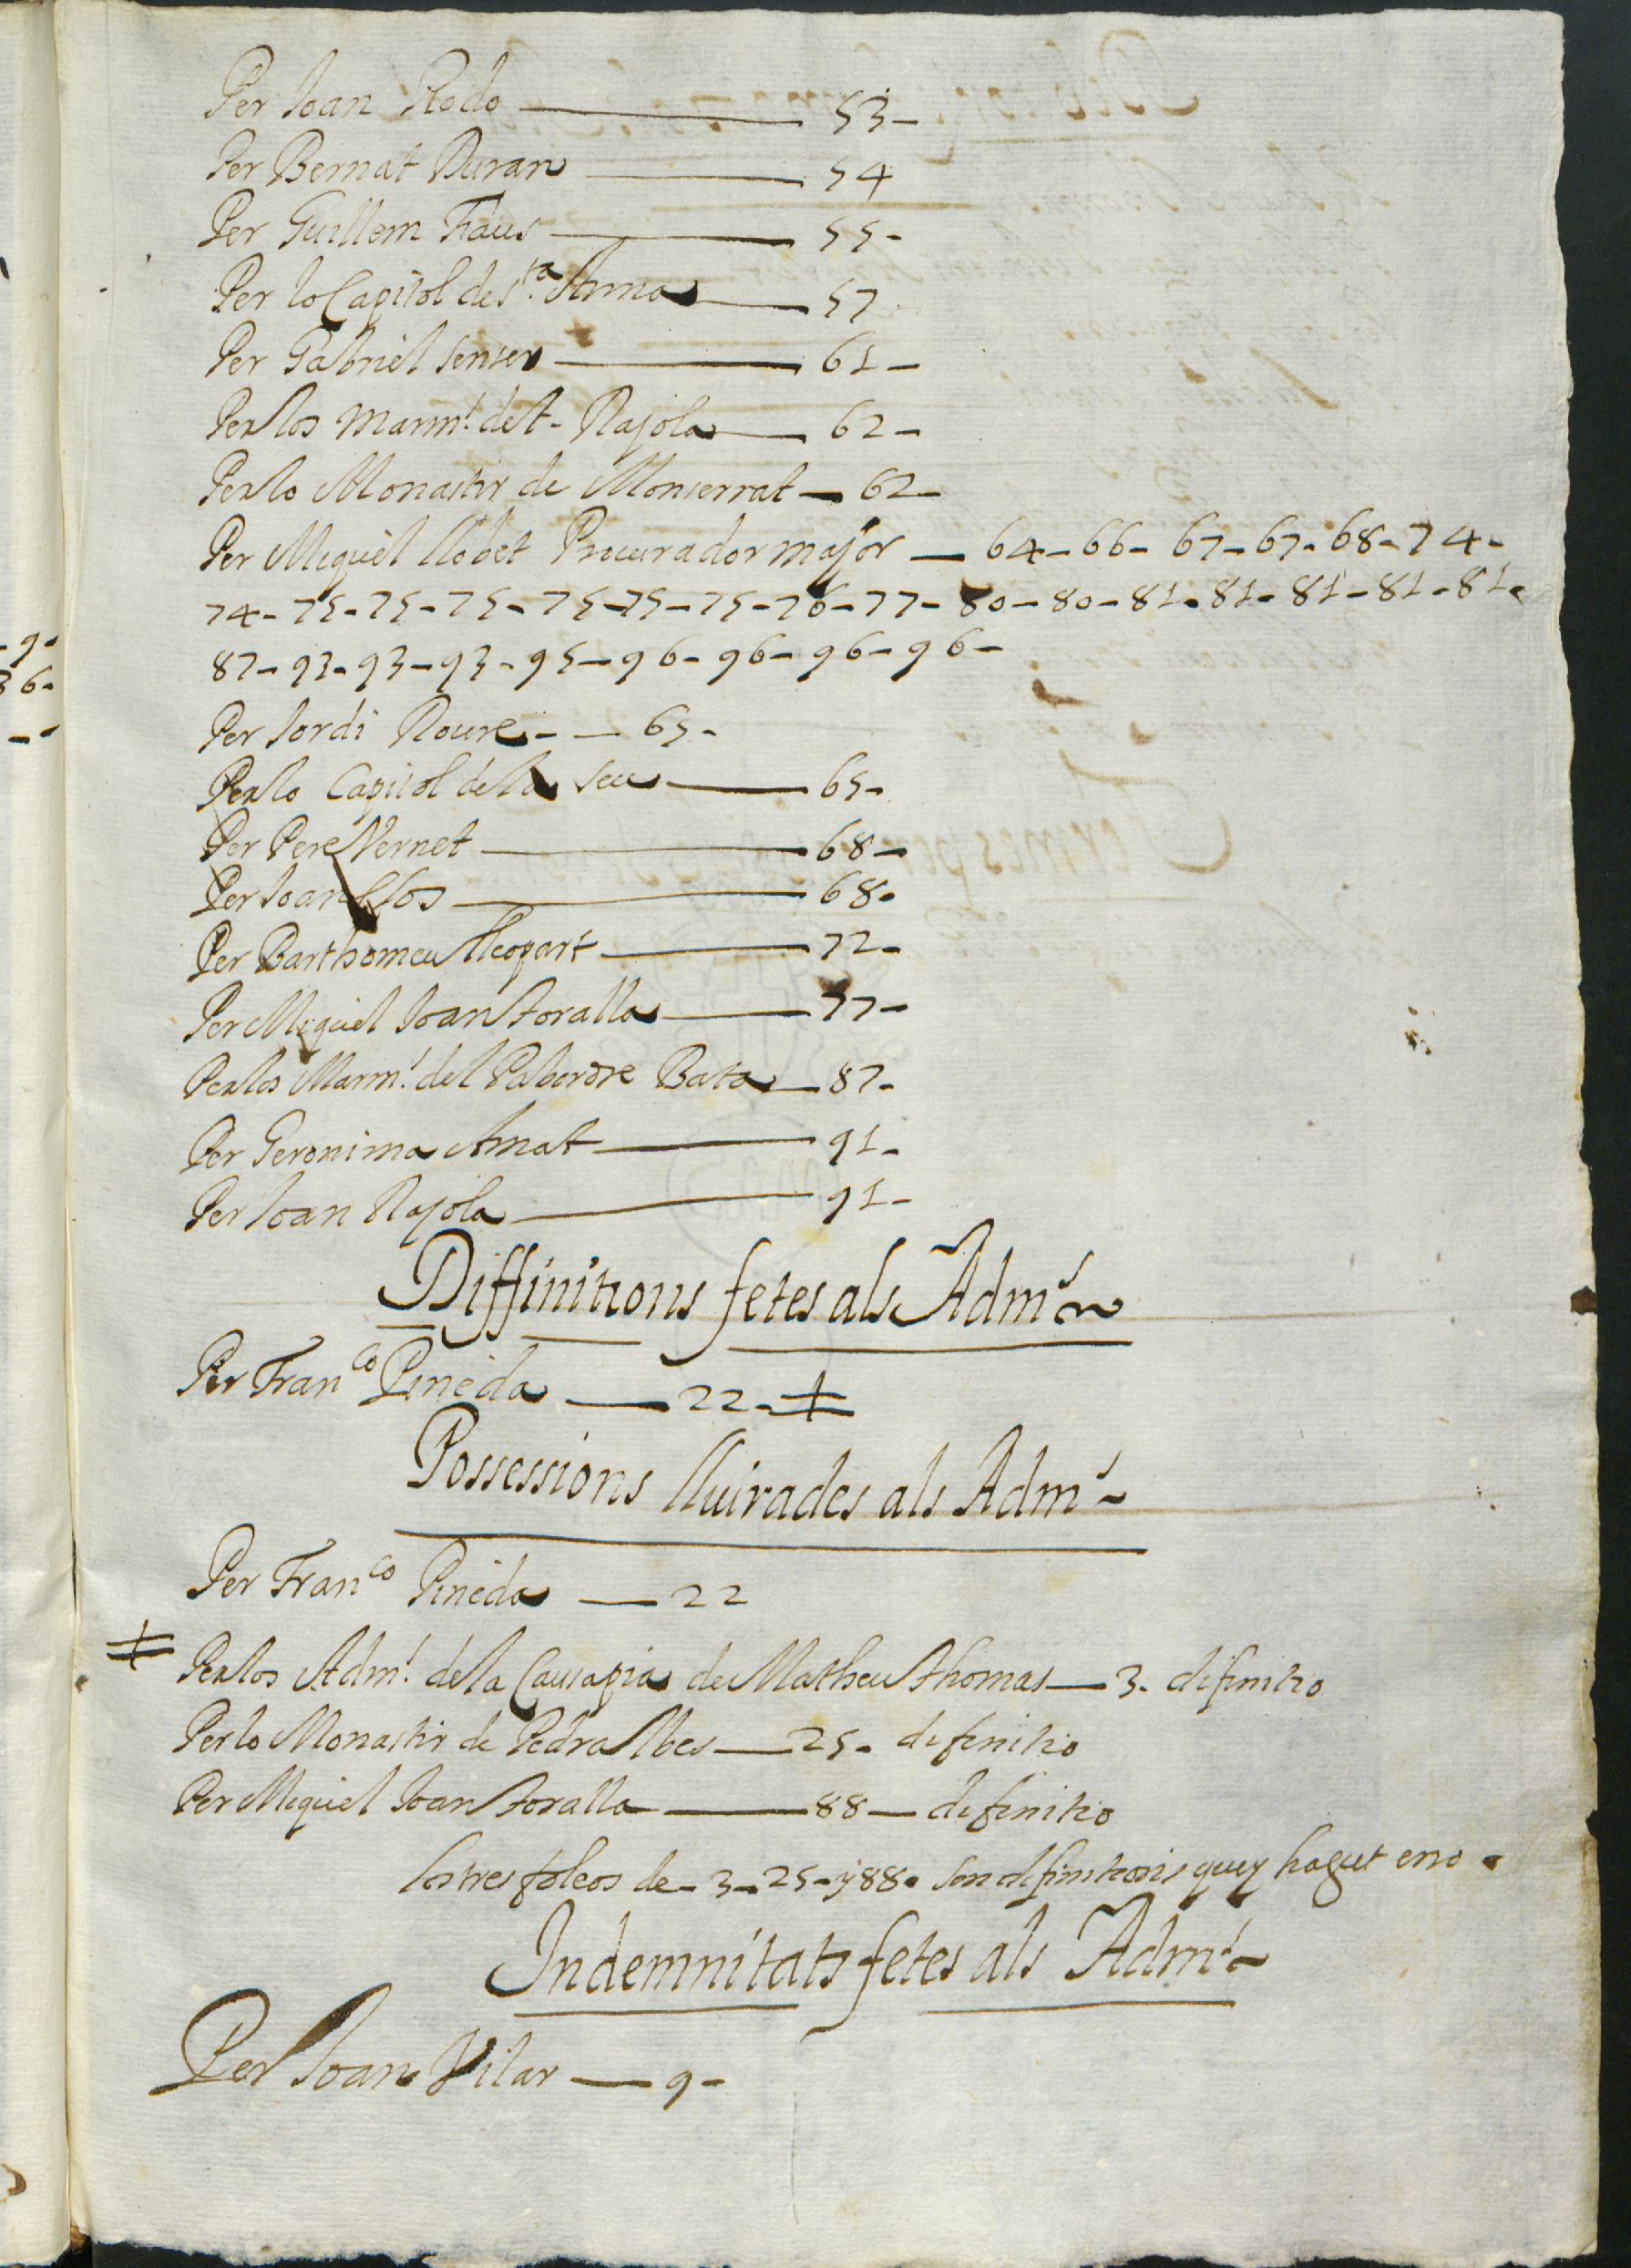 Per Joan Rodo — 53-
Per Bernat Duran — 54
Per Guillem Faus — 55-
Per lo Capitol de S.ta Anna — 57
Per Gabriel Senser — 61-
Per los Marm.s de t. Rajola — 62-
Per lo Monastir de Monserrat — 62-
Per Miquel Llobet Procurador major — 64-66-67-67-68-74-
74-75-75-75-75-75-75-76-77-80-80-81-81-81-81-81-
87-93-93-93-95-96-96-96-96-
Per Jordi Roure - — 65-
Per lo Capitol de la Seu — 65-
Per Pere Vernet — 68-
Per Joan Clos — 68-
Per Barthomeu Lleopart — 72-
Per Miquel Joan Toralla — 77-
Per los Marm.s del Paborde Bata — 87-
Per Geronima Amat — 91-
Per Joan Rajola — 91-
Diffinitions fetes als Adm.s
Per Fran.co Pineda — 22-‡
Possessions lluirades als Adm.s
Per Fran.co Pineda — 22
‡ Per los Adm.s de la Causapia de Matheu Thomas — 3- difinitio
Per lo Monastir de Pedralbes — 25- difinitio
Per Miquel Joan Toralla — 88 — difinitio
los tres foleos de-3-25-y 88- son difinitions quey hagut erro-
Indemnitats fetes als Adm.s
Per Joan Vilar — 9-
-9-
36-